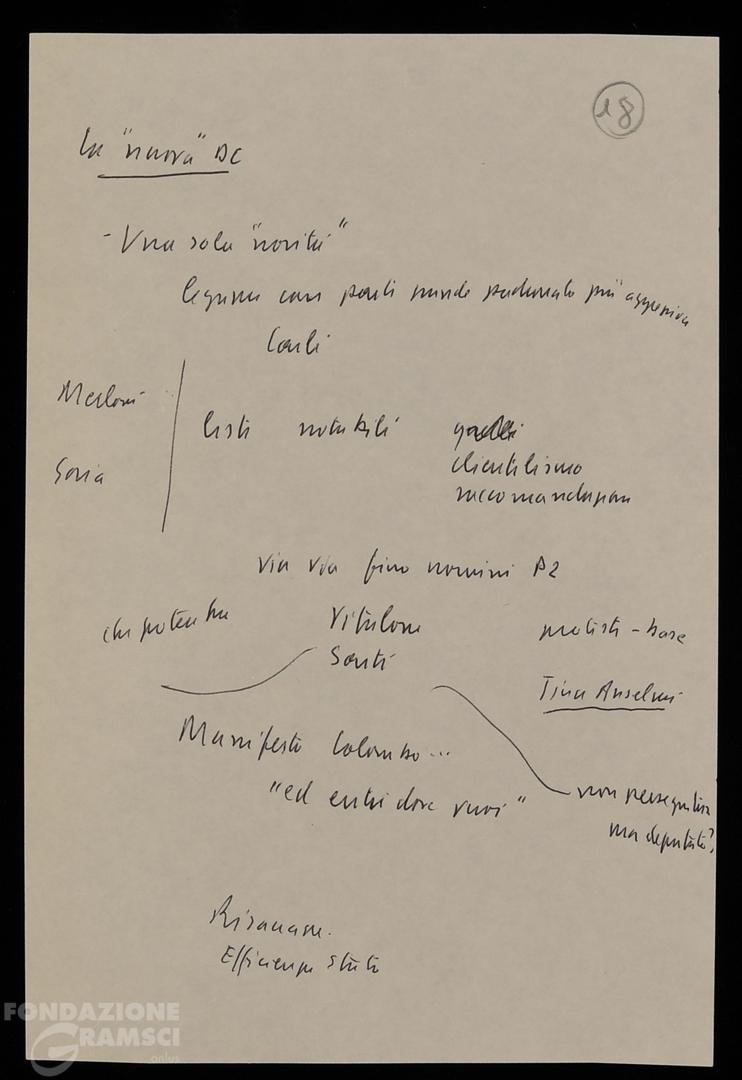 18
La "nuova" DC
- Una sola "novità"
legame con parti mondo padronale più aggressiva
Carli
Merloni
liste notabili
Goria
clientelismo
raccomandazioni
via via fino uomini P2
che potenza
Vitalone
protesta - base
Sarti
Tina Anselmi
Manifesto Colombo...
"ed entri dove vuoi"
non
ma deputato?
Risanare.
Efficienza Stato
FONDAZIONE
GRAMSCI
onlus